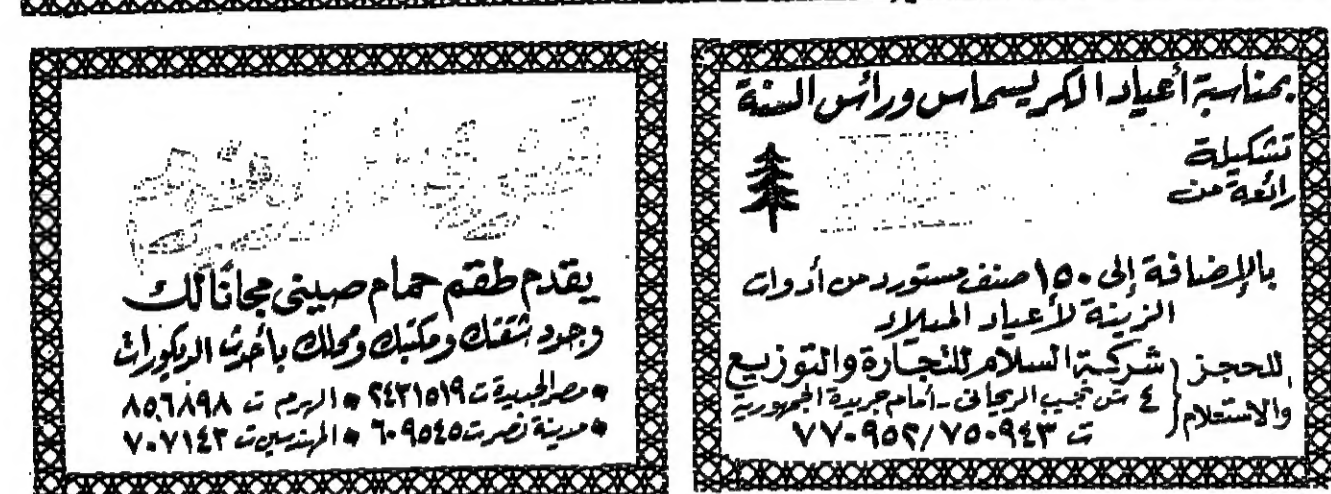 بمناسبة أعياد الكريسماس ورأس السنة
تشكيلة
رائعة من
بالإضافة إلى ١٥٠ صنف مستورد من أدوات
الزينة لأعياد الميلاد
للحجز
والاستعلام
شركة السلام للتجارة والتوزيع
٤ ش نجيب الريحانى - أمام جريدة الجمهورية
ت ٧٥٠٩٤٣/٧٧٠٩٥٢
يقدم طقم حمام صينى مجاناً لك
وجدد شقتك ومكتبك ومحلك بأحدث الديكورات
• مصر الجديدة ت ٢٤٣١٥١٩ • الهرم ت ٨٥٦٨٩٨
• مدينة نصر ت ٦٠٩٥٤٥ • المهندسين ت ٧٠٧١٤٣